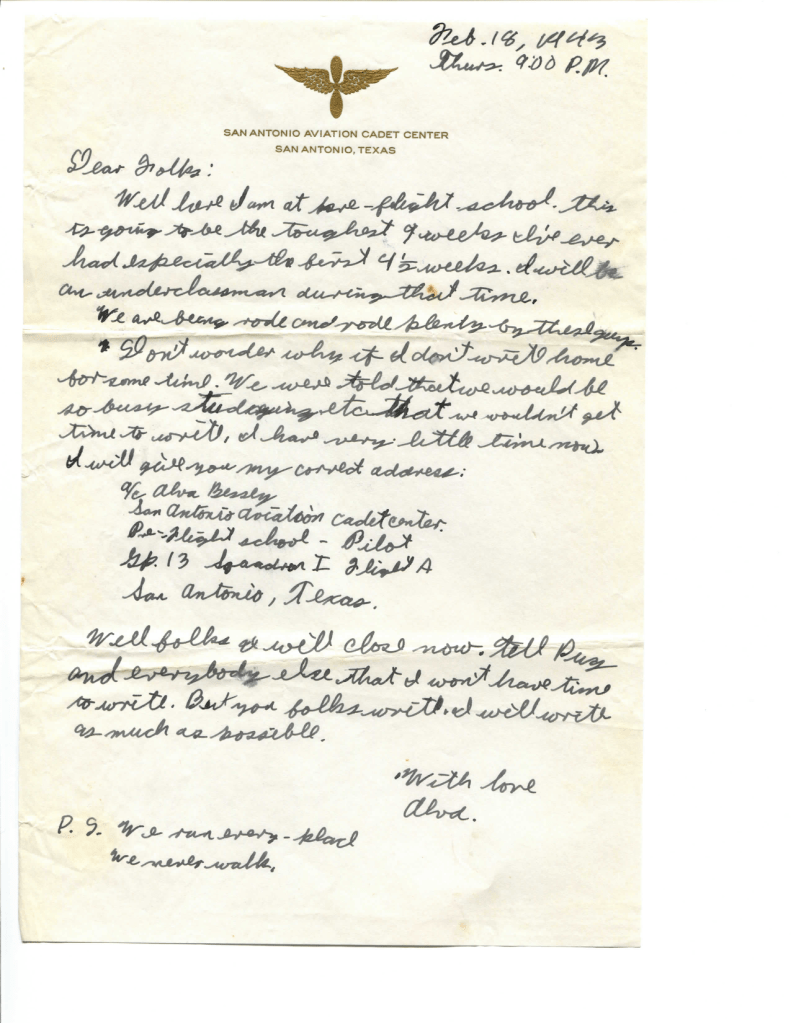 Feb. 18, 1943
Thurs. 9:00 P.M.
SAN ANTONIO AVIATION CADET CENTER
SAN ANTONIO, TEXAS
Dear Folks:
Well here I am at pre-flight school. this
is going to be the toughest 9 weeks I've ever
had especially the first 4½ weeks. I will be
an underclassman during that time.
We are being rode and rode plenty by these guys.
Don't wonder why if I don't write home
for some time. We were told that we would be
so busy studying etc that we wouldn't get
time to write, I have very little time now.
I will give you my correct address:
A/C Alva Bessey
San Antonio Aviation cadet center.
Pre-Flight school - Pilot
Gp. 13 Squadron I Flight A
San Antonio, Texas.
Well folks I will close now. tell
and everybody else that I won't have time
to write. But you folks write. I will write
as much as possible.
With love
Alva.
P. S. We run every-place
We never walk.